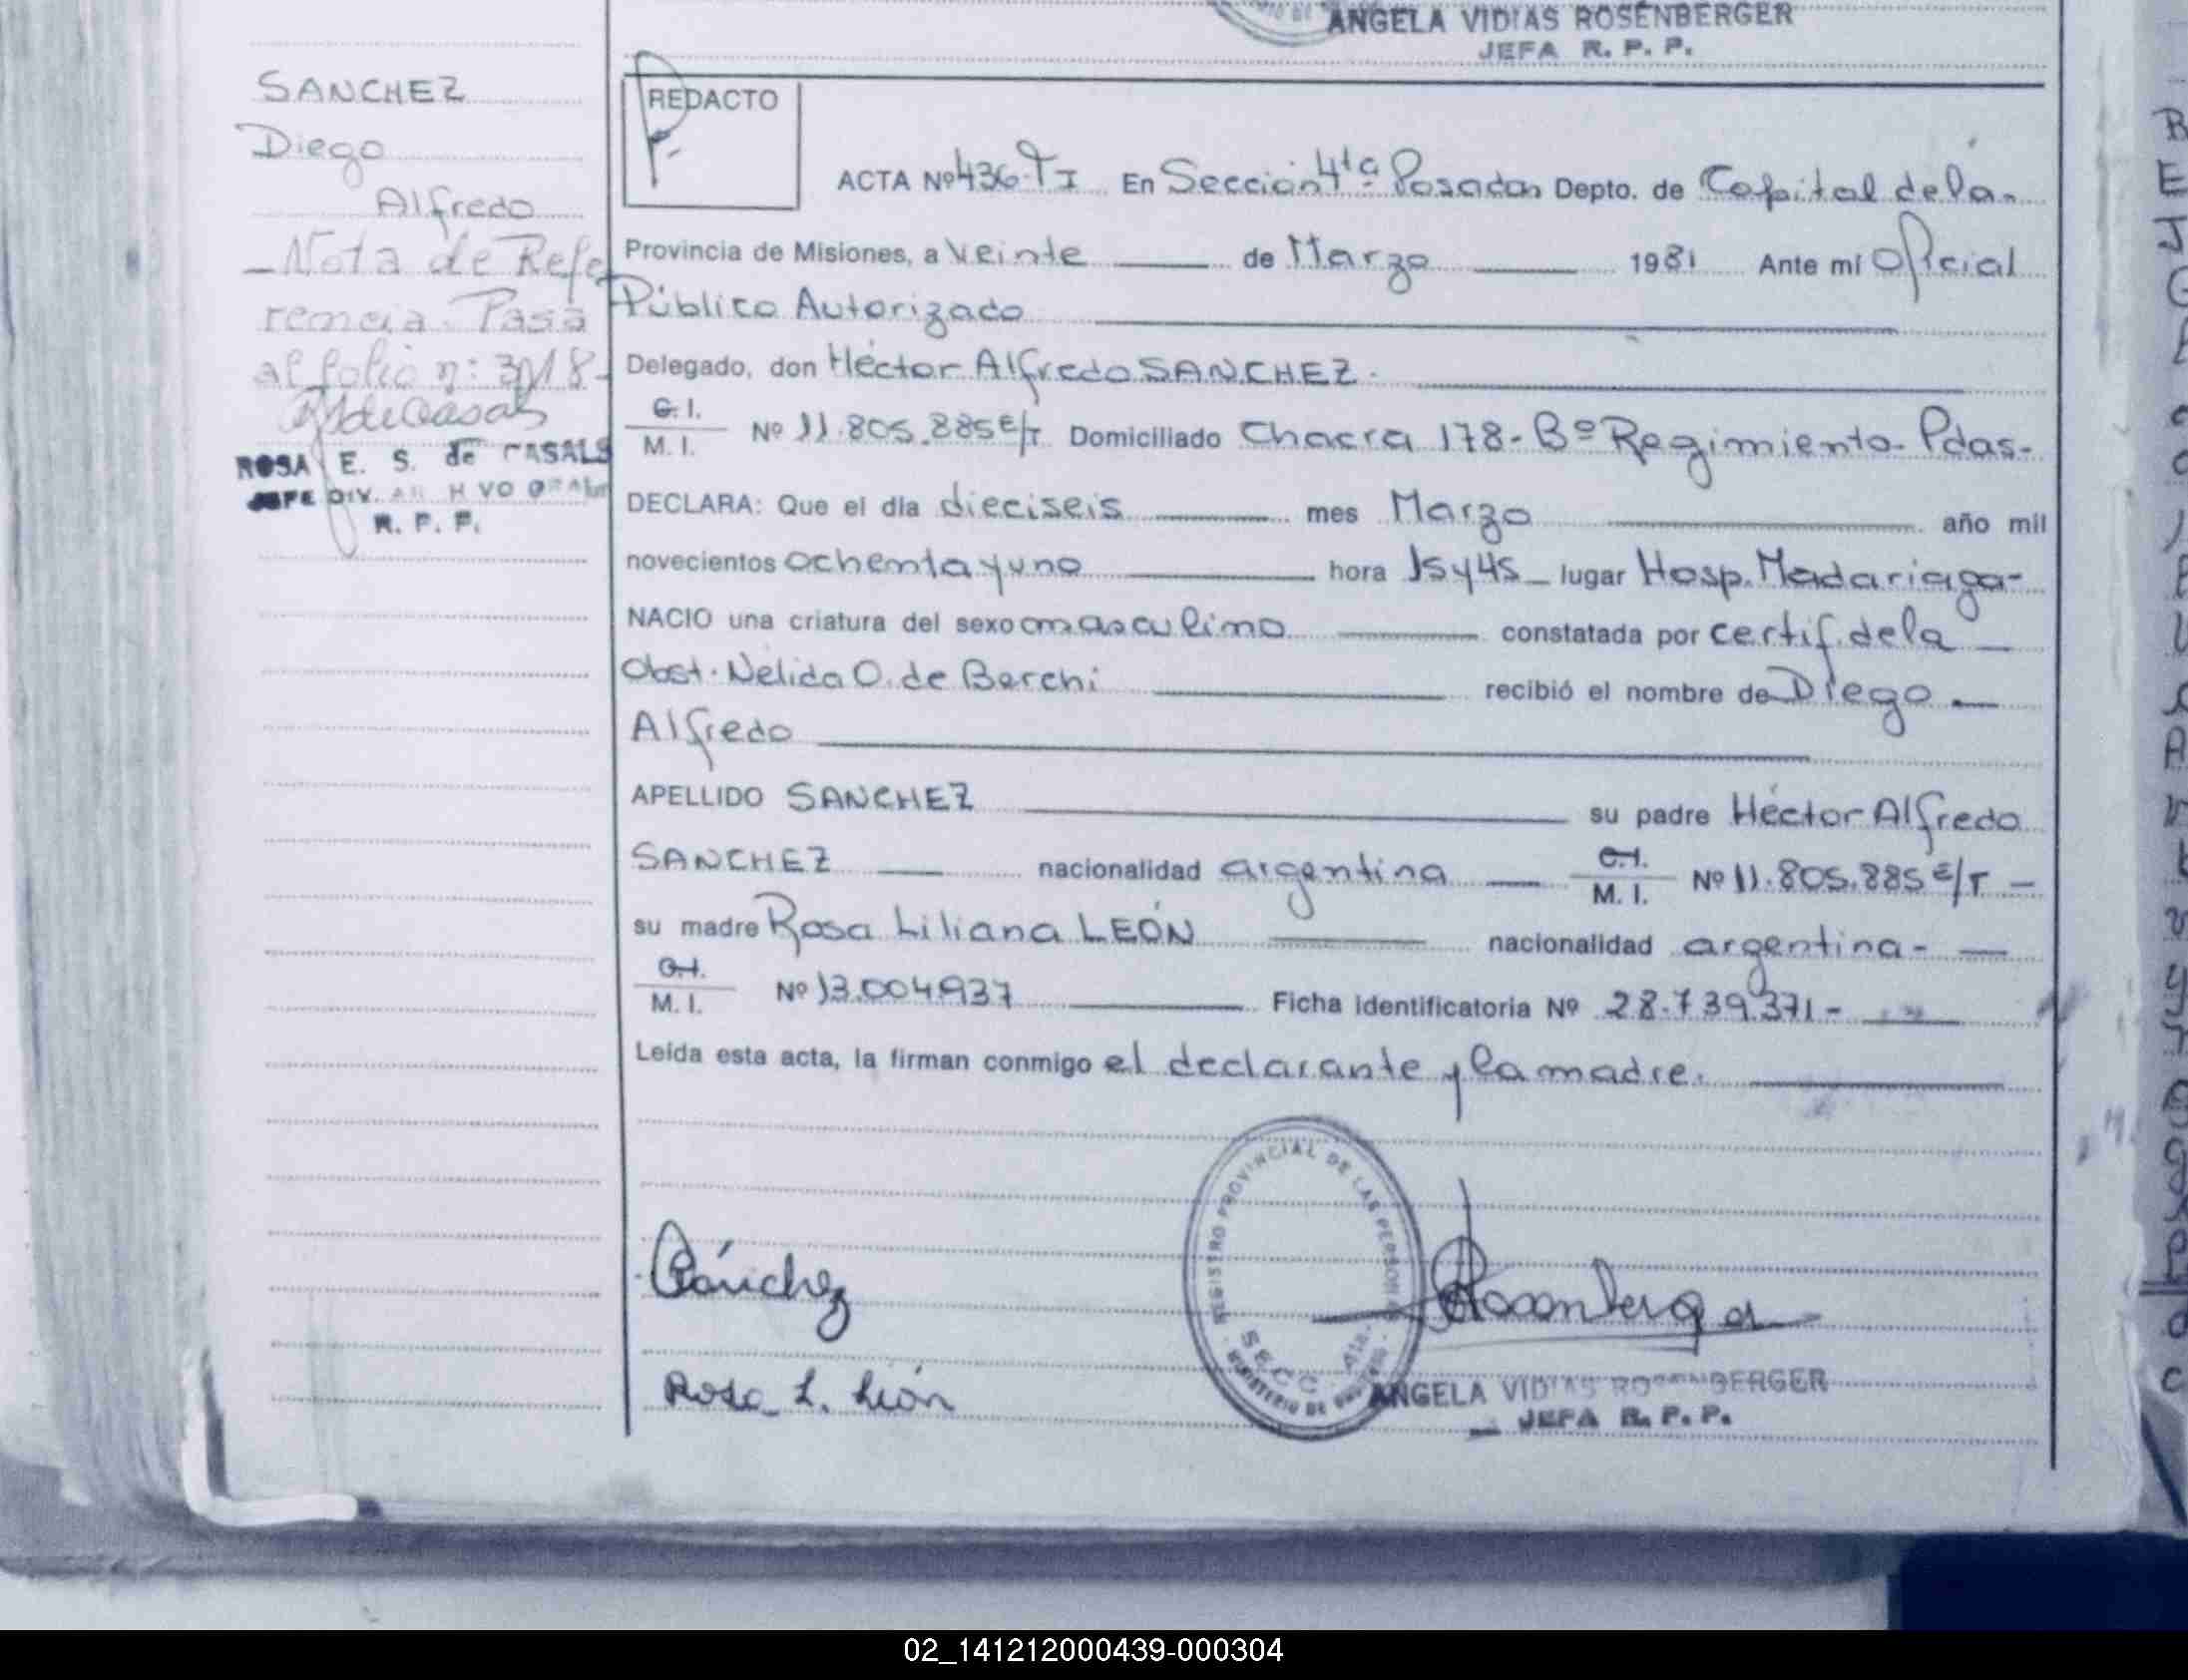 ANGELA VIDIAS ROSENBERGER
JEFA R. P. P.
SANCHEZ
Diego
Alfredo
- Nota de Refe
rencia. Pasa
al folio n: 3018-
ROSA E. S. de CASALS
JEFE DIV.
R. P. P.
REDACTO
ACTA Nº 436-TI En Sección 4ta Posadas Depto. de Capital de la
Provincia de Misiones, a Veinte de Marzo 1981 Ante mí Oficial
Público Autorizado
Delegado, don Héctor Alfredo SANCHEZ.
C. I.
M. I. Nº 11.805.885 E/T Domiciliado Chacra 178-Bº Regimiento-Pdas-
DECLARA: Que el día dieciseis mes Marzo año mil
novecientos ochenta y uno hora 15y45 lugar Hosp. Madariaga-
NACIO una criatura del sexo masculino constatada por certif. de la
Obst. Nélida O. de Berchi recibió el nombre de Diego
Alfredo
APELLIDO SANCHEZ su padre Héctor Alfredo
SANCHEZ nacionalidad argentina C.I. M. I. Nº 11.805.885 E/T
su madre Rosa Liliana LEÓN nacionalidad argentina-
C.I.
M. I. Nº 13.004.937 Ficha identificatoria Nº 28.739.371-
Leída esta acta, la firman conmigo el declarante y la madre.
REGISTRO PROVINCIAL DE LAS PERSONAS
SECC. 4ta.
MINISTERIO DE GOBIERNO
Sánchez
Rosenberger
Rosa L. León
ANGELA VIDIAS ROSENBERGER
JEFA R. P. P.
02_141212000439-000304